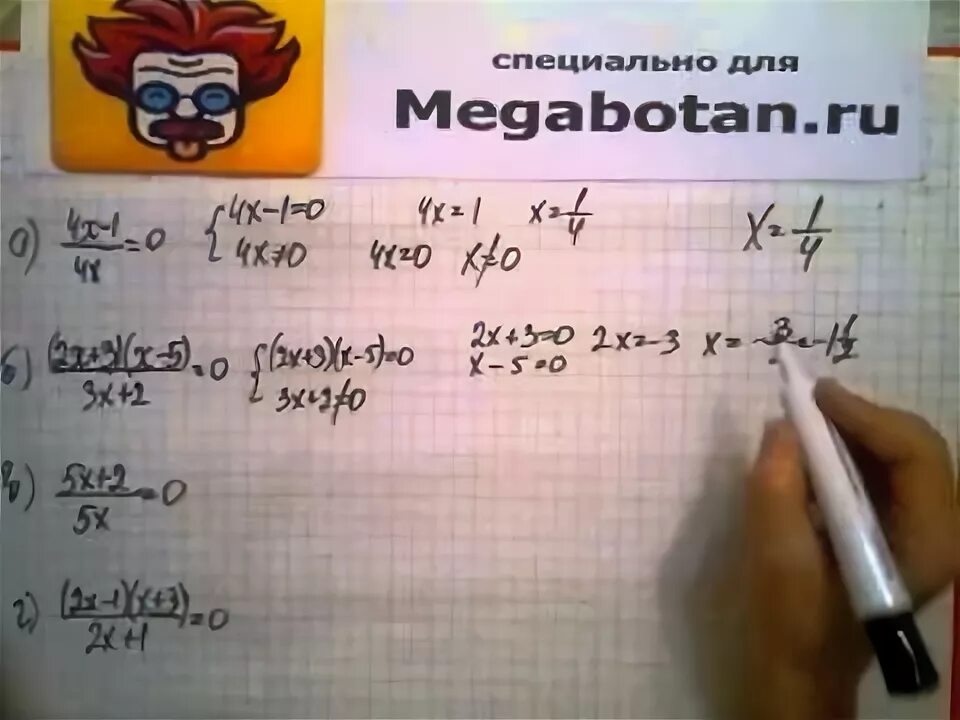 специально для
Megabotan.ru
а) 4x-1/4x=0 {4x-1=0 4x≠0 4x=1 x=1/4 4x=0 x≠0 x=1/4
б) (2x+3)(x-5)/3x+2=0 {(2x+3)(x-5)=0 3x+2≠0 2x+3=0 x-5=0 2x=-3 x=-3/ =-1 1/2
в) 5x+2/5x=0
г) (2x-1)(x+3)/2x+1=0